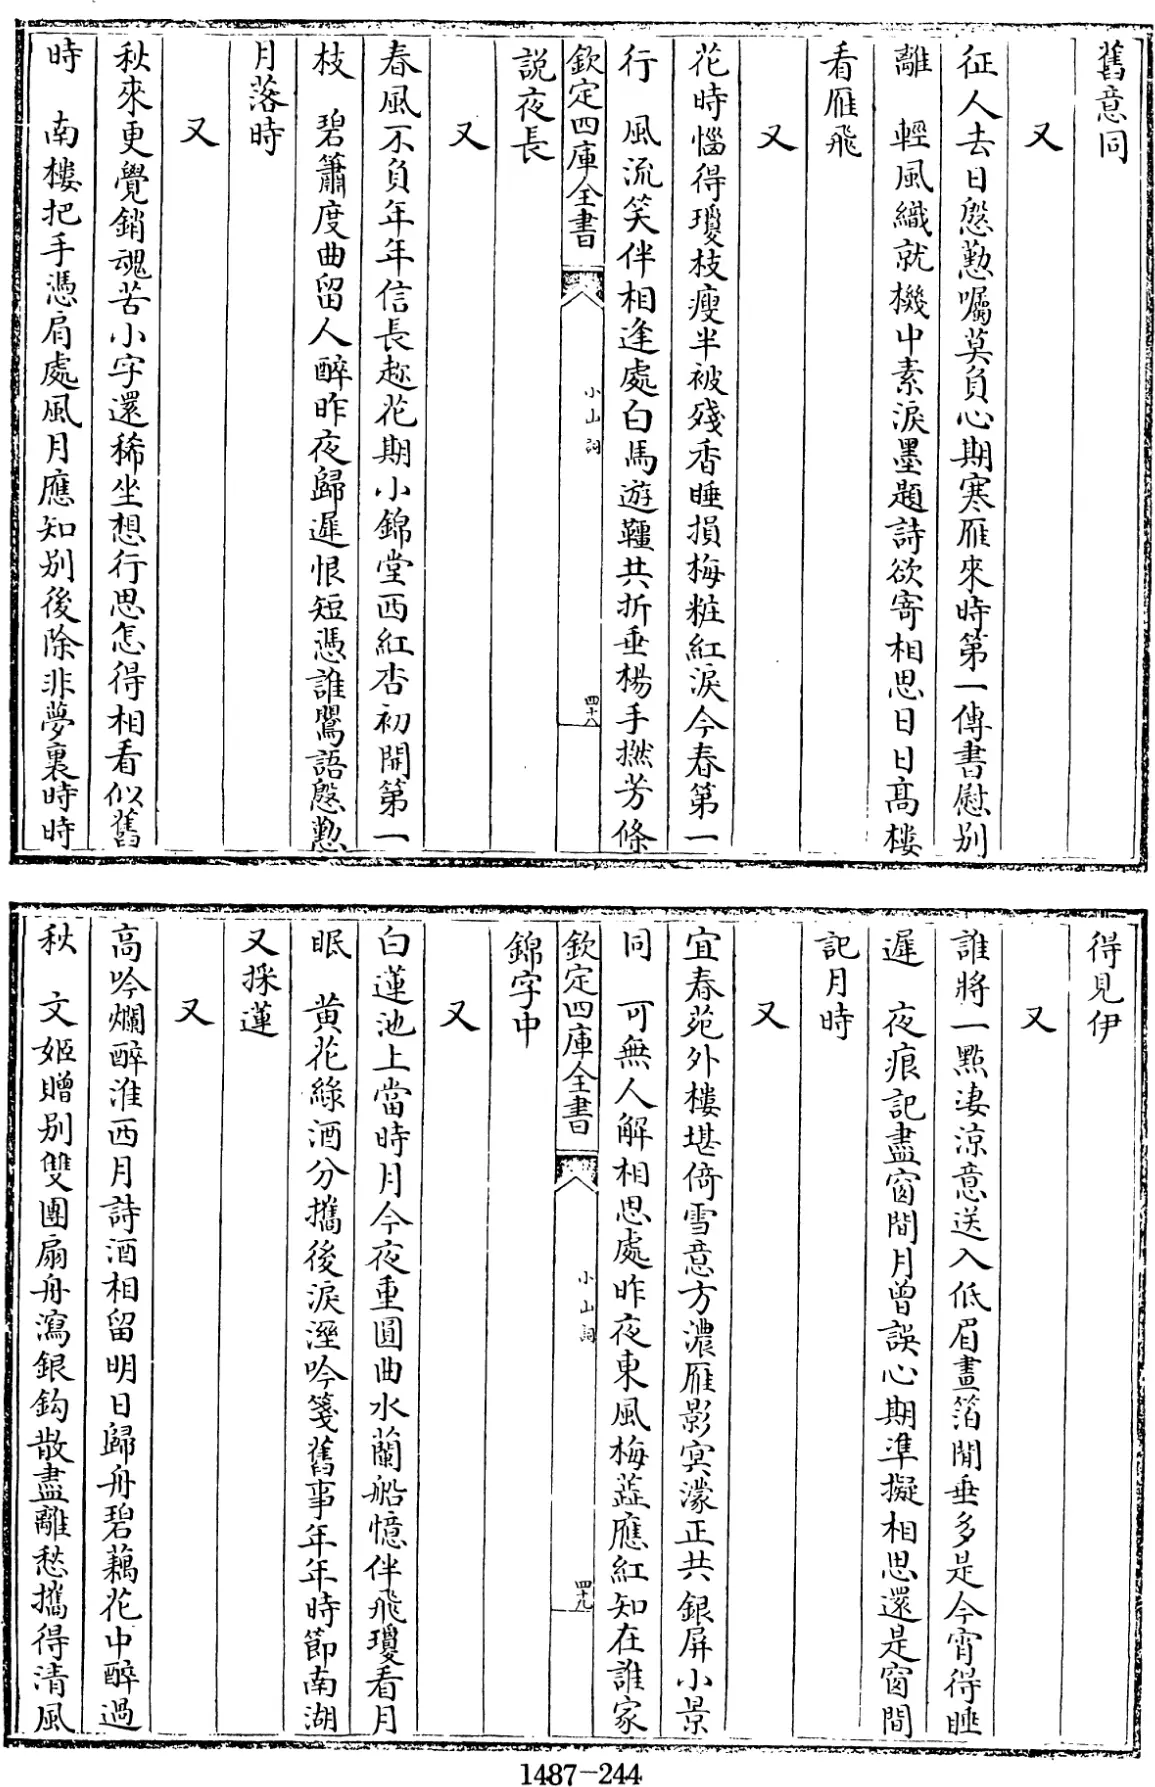 舊意同
又
征人去日慇懃囑莫負心期寒雁來時第一傳書慰别
離　輕風織就機中素淚墨題詩欲寄相思日日髙樓
看雁飛
又
花時惱得瓊枝瘦半被殘香睡損梅粧紅淚今春第一
行　風流笑伴相逢處白馬遊韁共折垂楊手撚芳條
說夜長
欽定四庫全書
小山詞
四十八
又
春風不負年年信長趂花期小錦堂西紅杏初開第一
枝　碧簫度曲留人醉昨夜歸遲恨短憑誰鶯語慇懃
月落時
又
秋來更覺銷魂苦小字還稀坐想行思怎得相看似舊
時　南樓把手憑肩處風月應知别後除非夢裏時時
得見伊
又
誰將一點淒涼意送入低眉畫箔閒垂多是今宵得睡
遲　夜痕記盡窗間月曾誤心期準擬相思還是窗間
記月時
又
宜春苑外樓堪倚雪意方濃雁影冥濛正共銀屏小景
同　可無人解相思處昨夜東風梅蕋應紅知在誰家
錦字中
欽定四庫全書
小山詞
四十九
又
白蓮池上當時月今夜重圓曲水蘭船憶伴飛瓊看月
眠　黄花綠酒分攜後淚溼吟箋舊事年年時節南湖
又採蓮
又
高吟爛醉淮西月詩酒相留明日歸舟碧藕花中醉過
秋　文姬贈别雙團扇舟瀉銀鈎散盡離愁攜得清風
1487-244